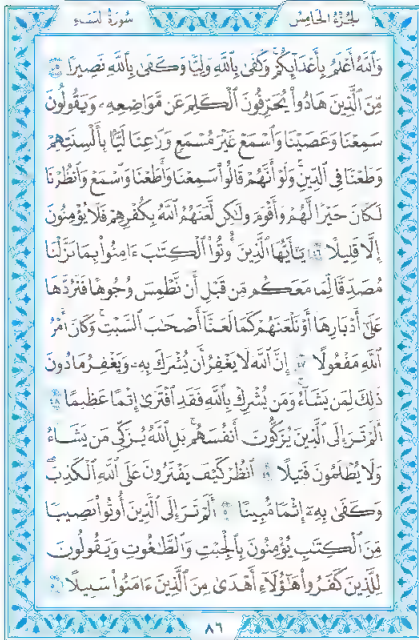 سُورَةُ النِّسَاءِ
الجُزْءُ الخَامِسُ
وَاللَّهُ أَعْلَمُ بِأَعْدَائِكُمْ وَكَفَىٰ بِاللَّهِ وَلِيًّا وَكَفَىٰ بِاللَّهِ نَصِيرًا ٤٥
مِّنَ الَّذِينَ هَادُوا يُحَرِّفُونَ الْكَلِمَ عَن مَّوَاضِعِهِ وَيَقُولُونَ
سَمِعْنَا وَعَصَيْنَا وَاسْمَعْ غَيْرَ مُسْمَعٍ وَرَاعِنَا لَيًّا بِأَلْسِنَتِهِمْ
وَطَعْنًا فِي الدِّينِ وَلَوْ أَنَّهُمْ قَالُوا سَمِعْنَا وَأَطَعْنَا وَاسْمَعْ وَانظُرْنَا
لَكَانَ خَيْرًا لَّهُمْ وَأَقْوَمَ وَلَٰكِن لَّعَنَهُمُ اللَّهُ بِكُفْرِهِمْ فَلَا يُؤْمِنُونَ
إِلَّا قَلِيلًا ٤٦ يَا أَيُّهَا الَّذِينَ أُوتُوا الْكِتَابَ آمِنُوا بِمَا نَزَّلْنَا
مُصَدِّقًا لِّمَا مَعَكُم مِّن قَبْلِ أَن نَّطْمِسَ وُجُوهًا فَنَرُدَّهَا
عَلَىٰ أَدْبَارِهَا أَوْ نَلْعَنَهُمْ كَمَا لَعَنَّا أَصْحَابَ السَّبْتِ وَكَانَ أَمْرُ
اللَّهِ مَفْعُولًا ٤٧ إِنَّ اللَّهَ لَا يَغْفِرُ أَن يُشْرَكَ بِهِ وَيَغْفِرُ مَا دُونَ
ذَٰلِكَ لِمَن يَشَاءُ وَمَن يُشْرِكْ بِاللَّهِ فَقَدِ افْتَرَىٰ إِثْمًا عَظِيمًا ٤٨
أَلَمْ تَرَ إِلَى الَّذِينَ يُزَكُّونَ أَنفُسَهُم بَلِ اللَّهُ يُزَكِّي مَن يَشَاءُ
وَلَا يُظْلَمُونَ فَتِيلًا ٤٩ انظُرْ كَيْفَ يَفْتَرُونَ عَلَى اللَّهِ الْكَذِبَ
وَكَفَىٰ بِهِ إِثْمًا مُّبِينًا ٥٠ أَلَمْ تَرَ إِلَى الَّذِينَ أُوتُوا نَصِيبًا
مِّنَ الْكِتَابِ يُؤْمِنُونَ بِالْجِبْتِ وَالطَّاغُوتِ وَيَقُولُونَ
لِلَّذِينَ كَفَرُوا هَٰؤُلَاءِ أَهْدَىٰ مِنَ الَّذِينَ آمَنُوا سَبِيلًا ٥١
٨٦